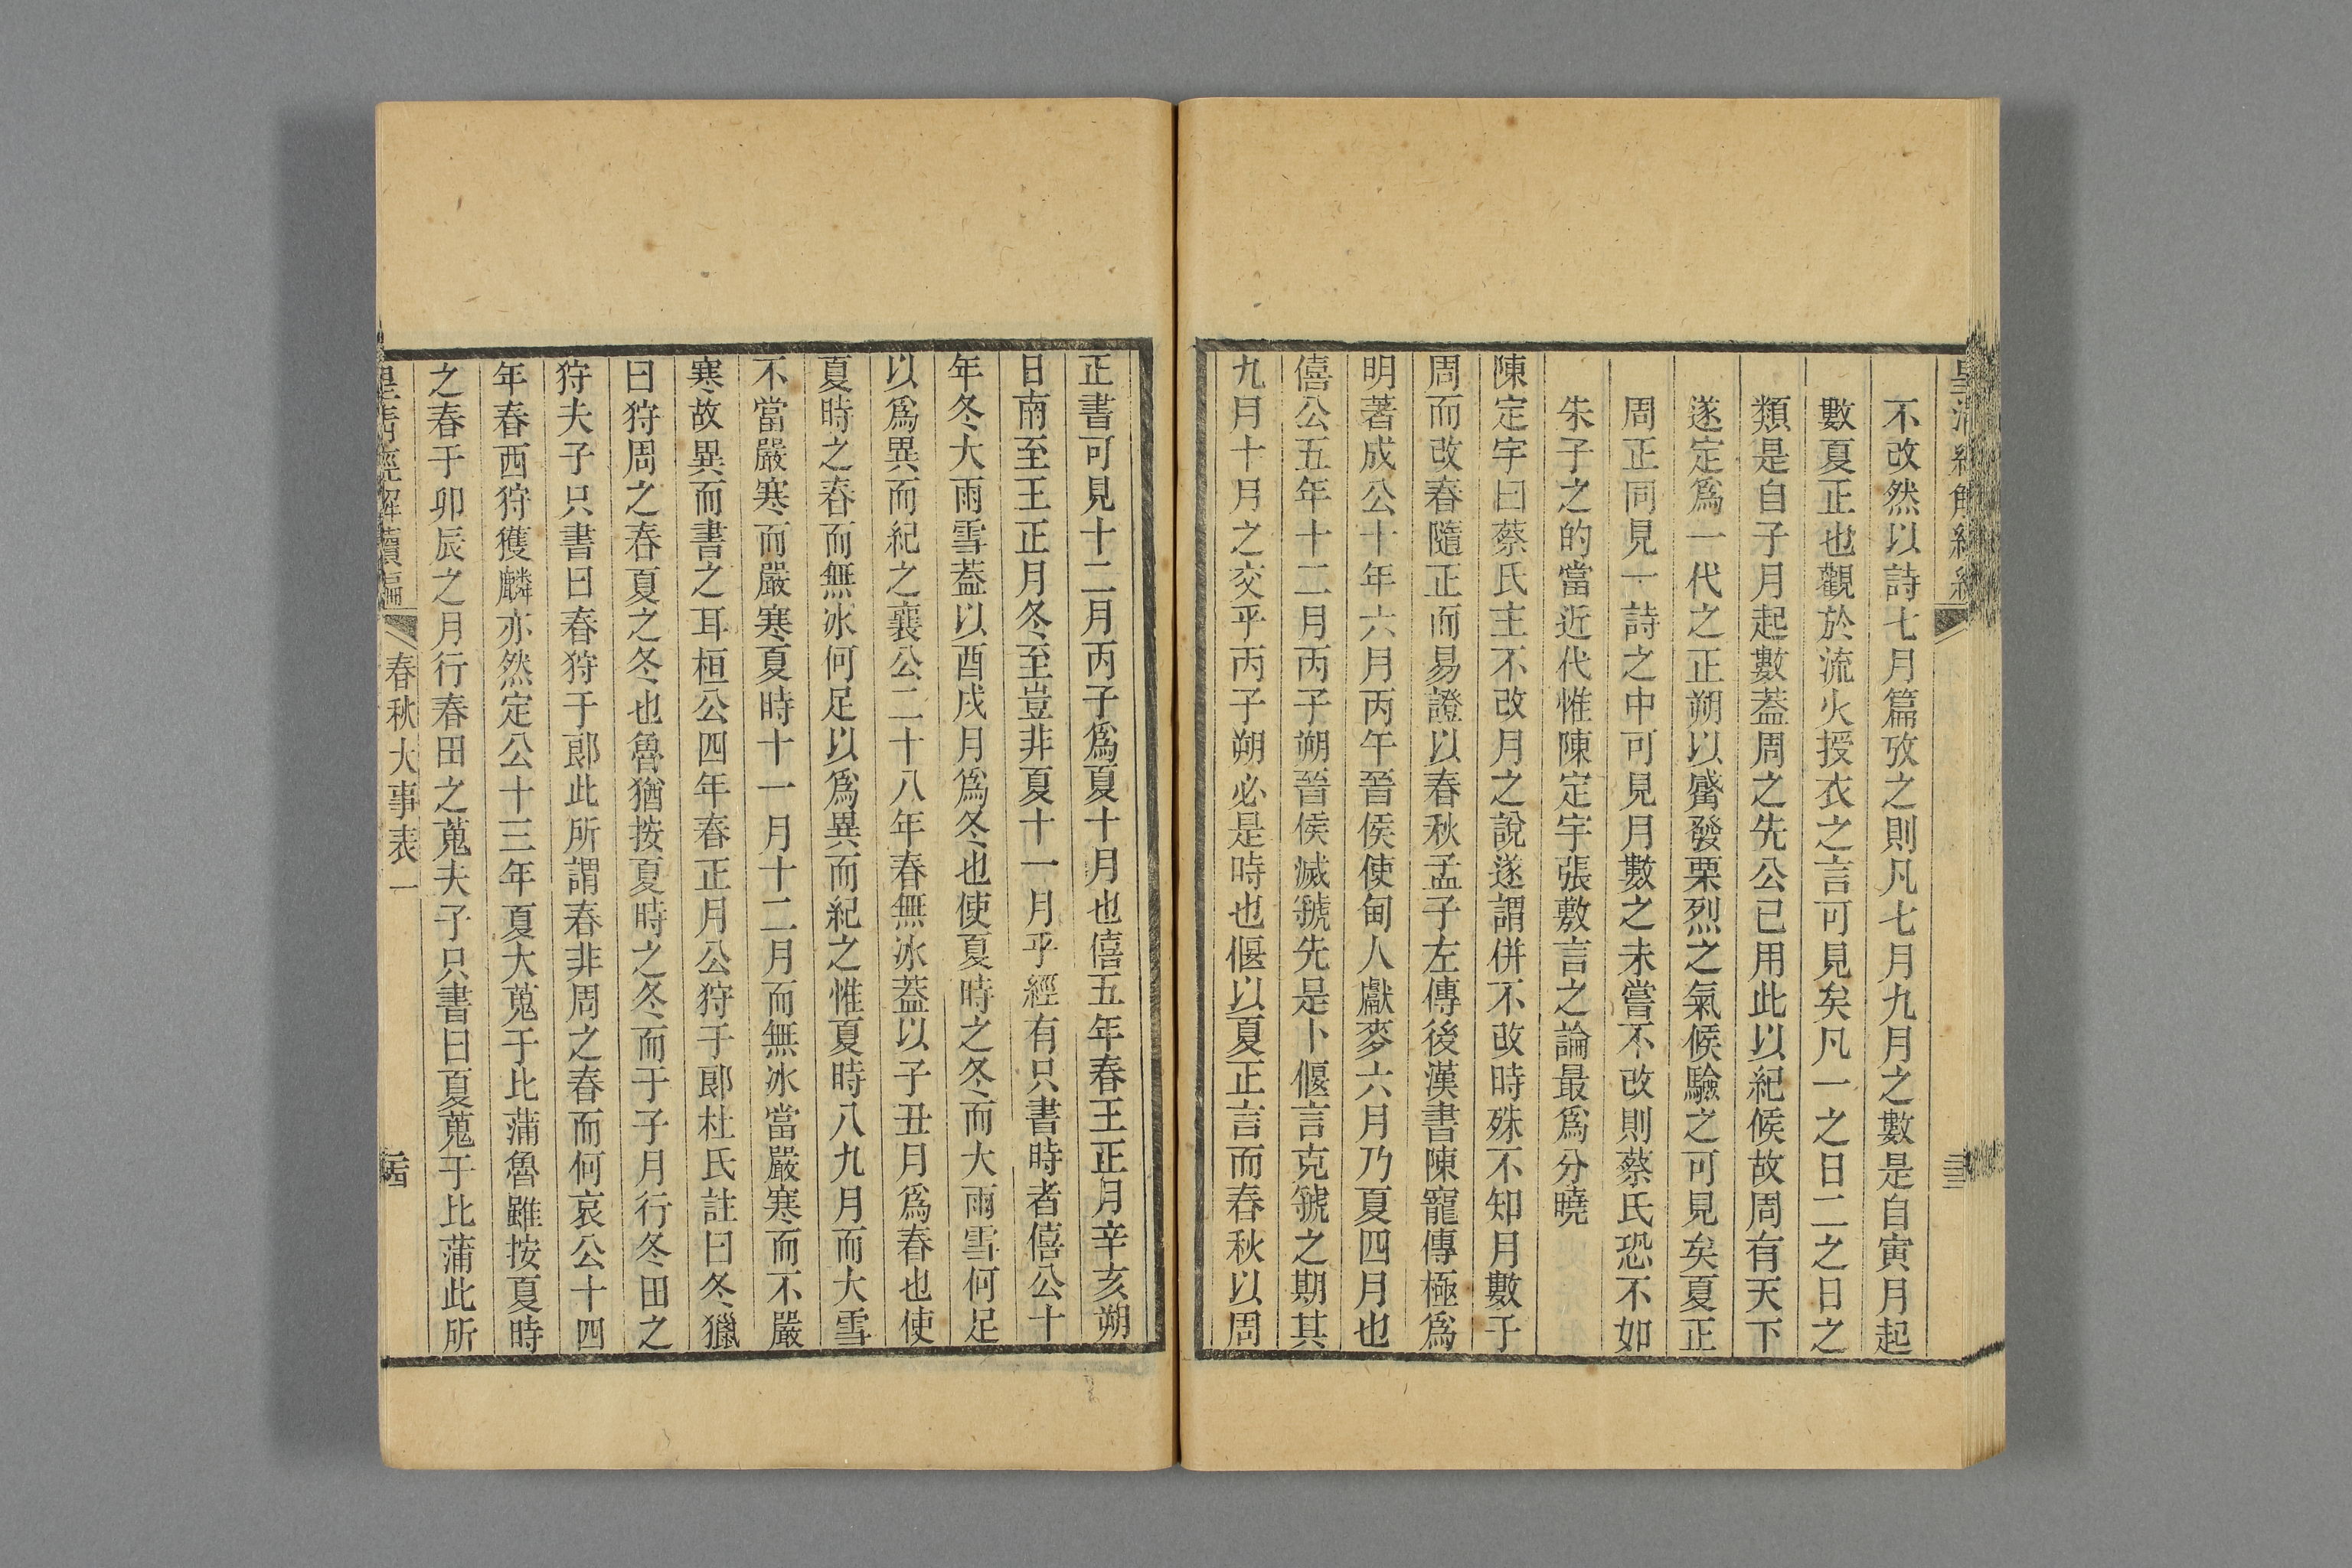 不改然以詩七月篇攷之則凡七月九月之數是自寅月起
數夏正也觀於流火授衣之言可見矣凡一之日二之日之
類是自子月起數蓋周之先公已用此以紀候故周有天下
遂定爲一代之正朔以觱發栗烈之氣候驗之可見矣夏正
周正同見一詩之中可見月數之未嘗不改則蔡氏恐不如
朱子之的當近代惟陳定宇張敷言之論最爲分曉
陳定宇曰蔡氏主不改月之說遂謂併不改時殊不知月數于
周而改春隨正而易證以春秋孟子左傳後漢書陳寵傳極爲
明著成公十年六月丙午晉侯使甸人獻麥六月乃夏四月也
僖公五年十二月丙子朔晉侯滅虢先是卜偃言克虢之期其
九月十月之交乎丙子朔必是時也偃以夏正言而春秋以周
正書可見十二月丙子爲夏十月也僖五年春王正月辛亥朔
日南至王正月冬至豈非夏十一月乎經有只書時者僖公十
年冬大雨雪蓋以酉戌月爲冬也使夏時之冬而大雨雪何足
以爲異而紀之襄公二十八年春無冰蓋以子丑月爲春也使
夏時之春而無冰何足以爲異而紀之惟夏時八九月而大雪
不當嚴寒而嚴寒夏時十一月十二月而無冰當嚴寒而不嚴
寒故異而書之耳桓公四年春正月公狩于郎杜氏註曰冬獵
曰狩周之春夏之冬也魯猶按夏時之冬而于子月行冬田之
狩夫子只書曰春狩于郎此所謂春非周之春而何哀公十四
年春西狩獲麟亦然定公十三年夏大蒐于比蒲魯雖按夏時
之春于卯辰之月行春田之蒐夫子只書曰夏蒐于比蒲此所
皇清經解續編
春秋大事表一